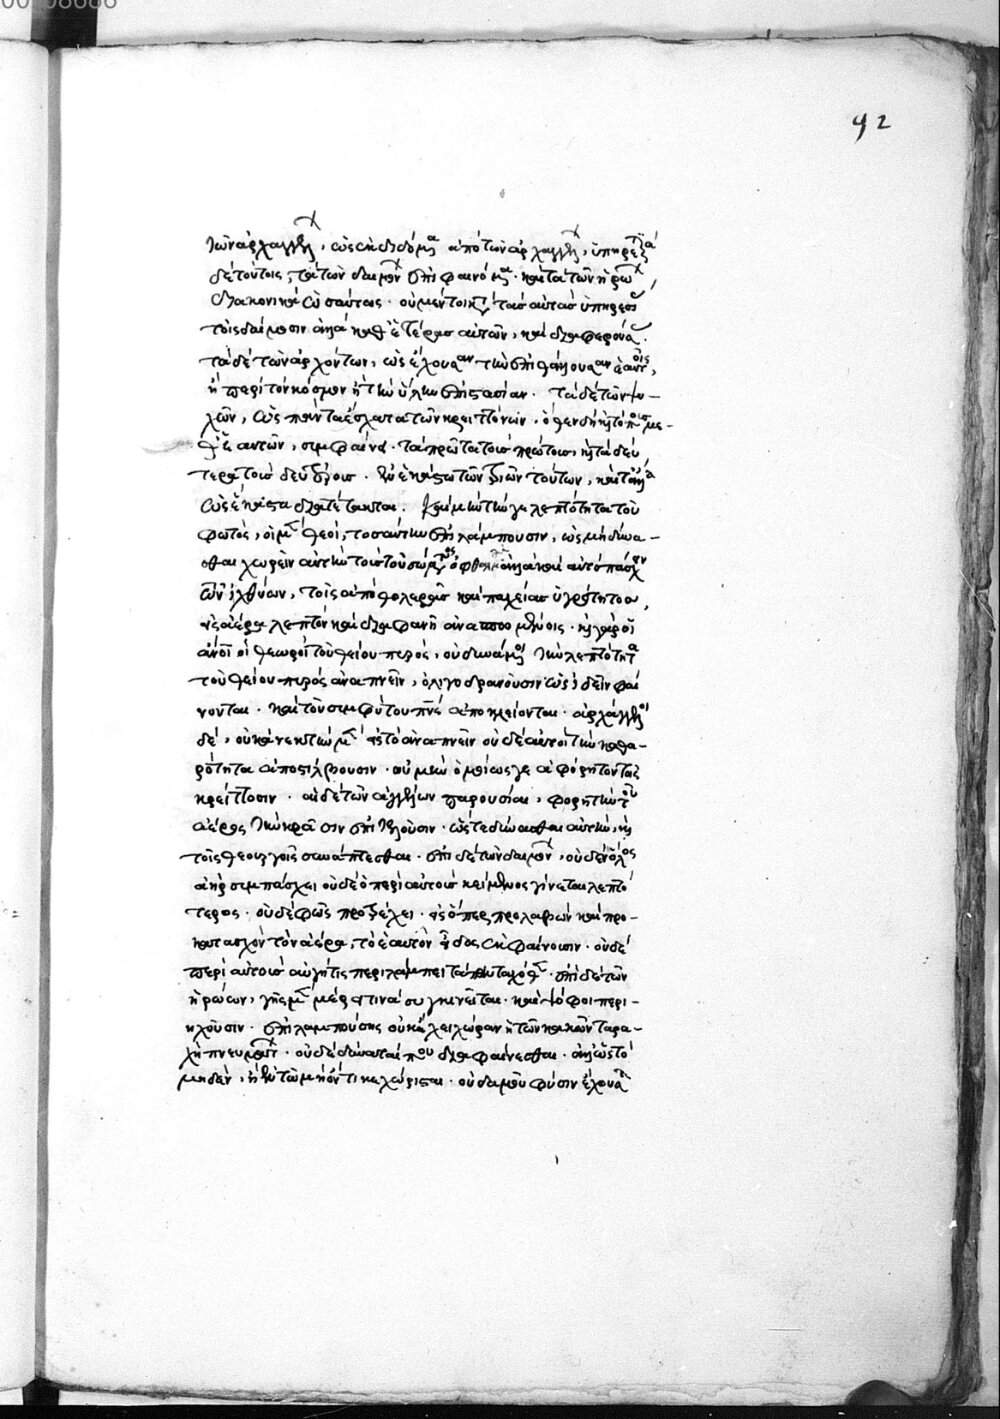 42
τῶν ἀρχαγγέλων, ὡς ἐνδιδόμενα ἀπὸ τῶν ἀρχαγγέλων, ὑπηρετικὰ
δὲ τούτοις, τὰ τῶν δαιμόνων ἐπιφαινόμενα. καὶ τὰ τῶν ἡρώων,
διακονικὰ ὡσαύτως. οὐ μέντοι τὰς αὐτὰς ὑπηρεσίας
τοῖς δαίμοσιν ἀλλὰ καθ' ἑτέρας αὐτῶν, καὶ διαφερούσας.
τὰ δὲ τῶν ἀρχόντων, ὡς ἔχουσαν τὴν ἐπιβάλλουσαν ἑαυτοῖς,
ἢ περὶ τὸν κόσμον ἢ τὴν ὕλην ἐπιστασίαν. τὰ δὲ τῶν ψυ-
χῶν, ὡς πάντα ἔσχατα τῶν κρειττόνων. ὅθεν δὴ καὶ τόποις με-
τὰ αὐτῶν, συμφαίνει. τὰ πρῶτα τοῖς πρώτοις, καὶ τὰ δεύ
τερα τοῖς δευτέροις. ἐν ἑκάστῳ τῶν τριῶν τούτων, καὶ τἆλλα
ὡς ἕκαστα διατέτακται. καὶ μὴν τήν γε λεπτότητα τοῦ
φωτὸς, οἱ μὲν θεοὶ, τοσαύτην ἐπιλάμπουσιν, ὡς μὴ δύνα-
σθαι χωρεῖν αὐτὴν τοὺς τοῦ σώματος ὀφθαλμοὺς ἀλλὰ καὶ αὐτὸ πάσχειν
τῶν ἰχθύων, τοῖς ἀπὸ θολερᾶς καὶ παχείας ὑγρότητος,
εἰς ἀέρα λεπτὸν καὶ διαφανῆ ἀνασπωμένοις. καὶ γὰρ οἱ
ἄνθρωποι οἱ θεωροὶ τοῦ θείου πυρὸς, οὐ δυνάμενοι τὴν λεπτότητα
τοῦ θείου πυρὸς ἀναπνεῖν, ὀλιγοδρανοῦσιν ὡς ἰδεῖν φαί
νονται. καὶ τοῦ συμφύτου πνεύματος ἀποκλείονται. ἀρχάγγελοι
δὲ, οὐκ ἀνεκτὴν μὲν εἰς τὸ ἀναπνεῖν οὐδὲ αὐτοὶ τὴν καθα-
ρότητα ἀποστίλβουσιν. οὐ μὴν ὁμοίως γε ἀφόρητον τοῖς
κρείττοσιν. αἱ δὲ τῶν ἀγγέλων παρουσίαι, φορητὴν τοῦ
ἀέρος τὴν κρᾶσιν ἐπιτελοῦσιν. ὥστε δύνασθαι αὐτὴν, καὶ
τοῖς θεουργοῖς συνάπτεσθαι. ἐπὶ δὲ τῶν δαιμόνων, οὐδὲν ὅλος
ἀὴρ συμπάσχει οὐδὲ ὁ περὶ αὐτοῖς κείμενος γίνεται λεπτό
τερος. οὐδὲ φῶς προτρέχει. εἰς ὅπερ προλαβὸν καὶ προ-
κατασχὸν τὸν ἀέρα, τὸ ἑαυτῶν εἶδος ἐκφαίνουσιν. οὐδέ
περὶ αὐτοῖς αὐγή τις περιλάμπει τὰ πανταχόθεν. ἐπὶ δὲ τῶν
ἡρώων, γῆς μὲν μέρη τινα συγκινεῖται. καὶ ψόφοι περι-
ηχοῦσιν. ἀὴρ
χὴ πνευμάτων. οὐδὲ δύναταί που διαφαίνεσθαι.
μηδὲν, ἢ ἐν τῷ μὴ ὄντι κεχώρισται. οὐδαμοῦ φύσιν ἔχουσα